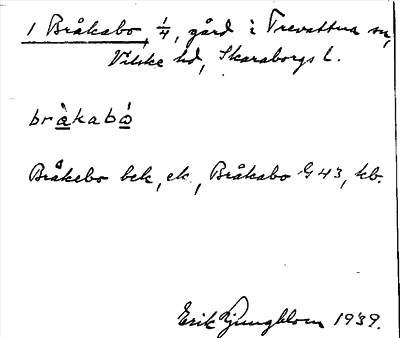 1 Bråkabo, 1/4, gård i Trevattna sn,
Vilske hd, Skaraborgs l.
bràkabó
Bråkebo bek, ek., Bråkabo G 43, kb.
Erik Ljungblom 1939.